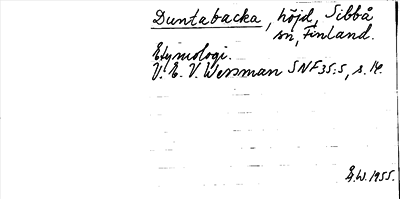 Duntabacka, höjd, Sibbå
sn, Finland.
Etymologi.
V. E. V. Wessman SNF 35:5, s. 14.
E.W. 1955.